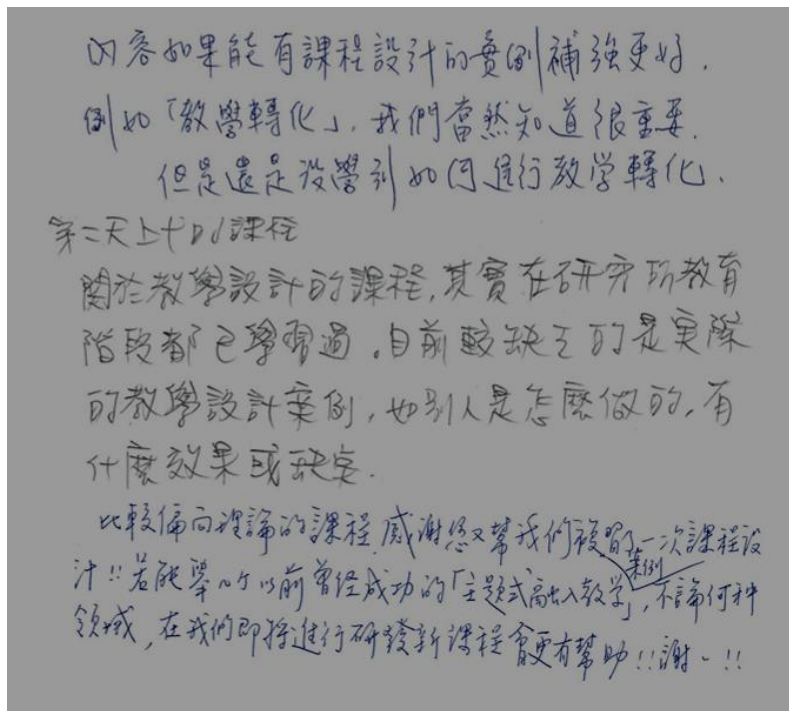 內容如果能有課程設計的實例補強更好.
例如「教學轉化」,我們當然知道很重要.
但是還是沒學到如何進行教学轉化.
第二天上午DJ課程
關於教學設計的課程,其實在研究所教育
階段都已學習過.目前較缺乏的是實際
的教學設計案例,如別人是怎麼做的,有
什麼效果或缺失.
比較偏向理論的課程,感謝您又幫我們複習了一次課程設
計!!若能舉以前曾经成功的「主題式融入教学」案例,不論何种
領域,在我們即將進行研發新課程會更有幫助!!謝~!!